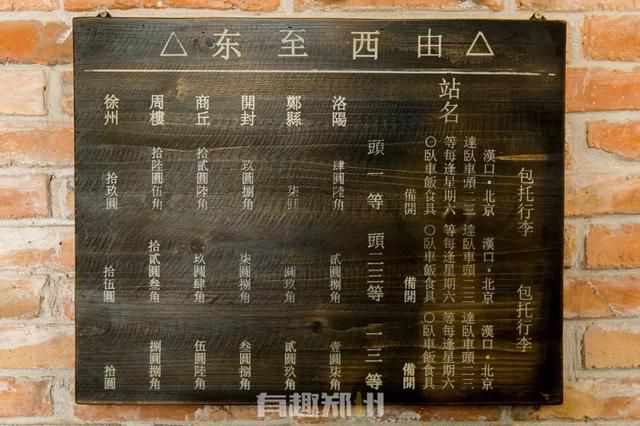 △由西至东△
包托行李 包托行李
漢口·北京 漢口，北京 漢口·北京
達臥車頭二三 達臥車頭二三 達臥車頭二三
等每逢星期六 等每逢星期六 等每逢星期六
〇臥車飯食具 〇臥車飯食具 〇臥車飯食具
備開 備開 備開
站名
頭一等 頭二三等 二三等
洛陽 肆圓陸角 貳圓捌角 壹圓柒角
鄭縣 柒圓 圓玖角 貳圓玖角
開封 玖圓捌角 柒圓捌角 叁圓捌角
商丘 拾貳圓陸角 玖圓肆角 伍圓陸角
周樓 拾陸圓伍角 拾貳圓叁角 捌圓捌角
徐州 拾玖圓 拾伍圓 拾圓
有趣郑州